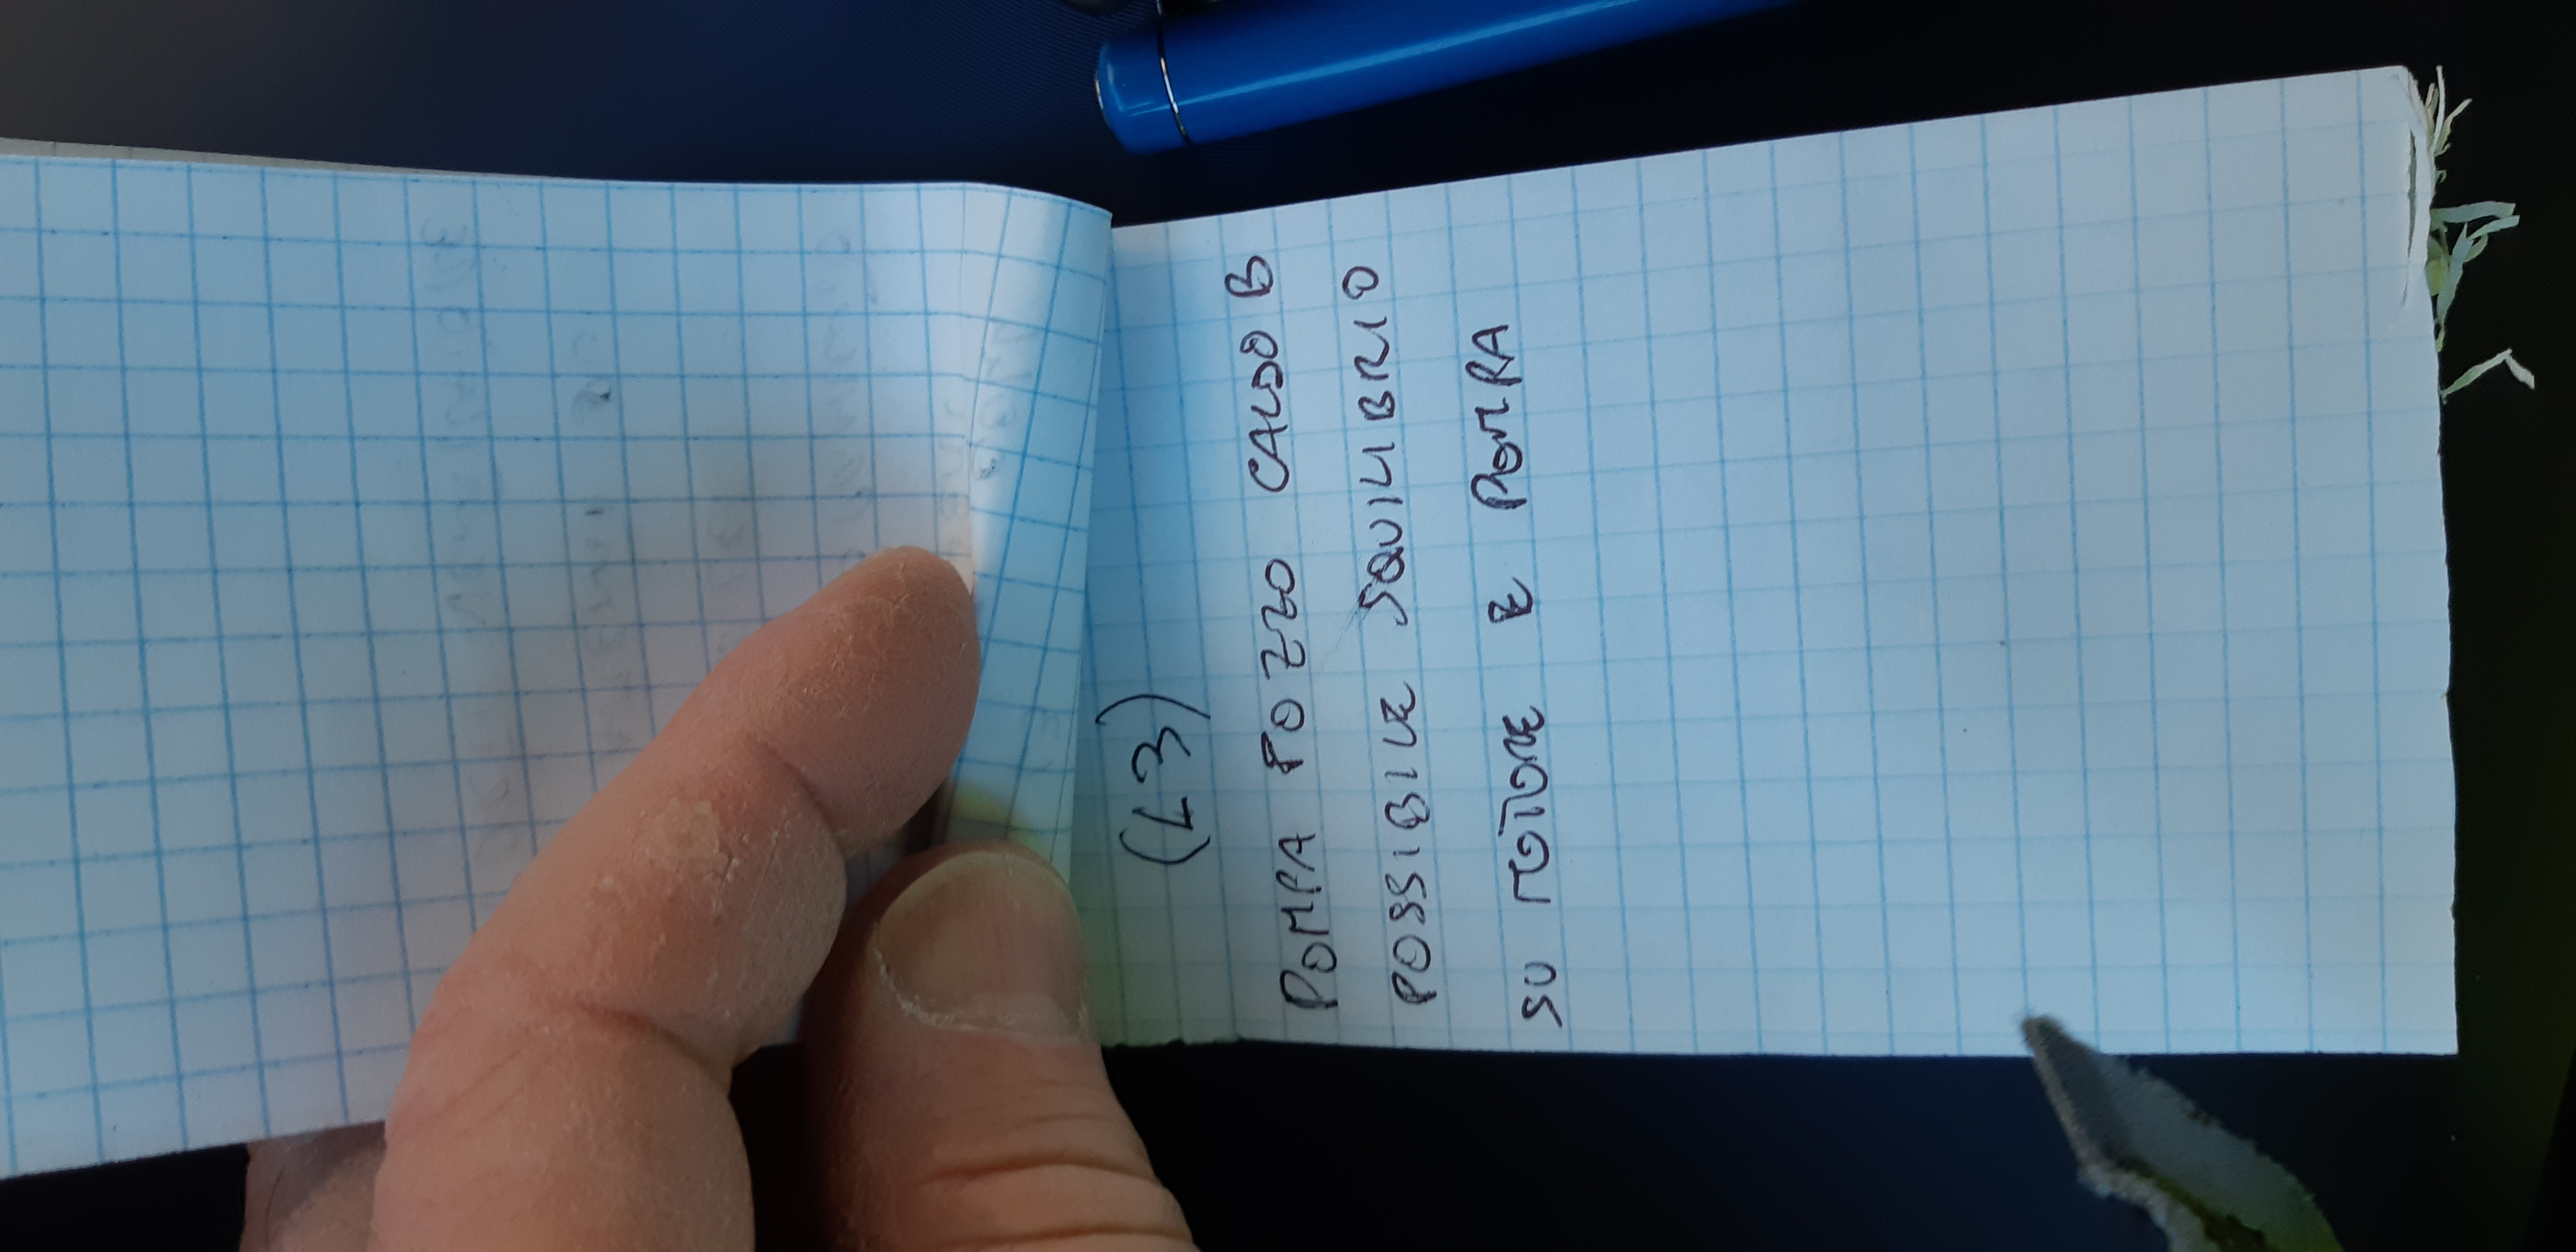 (L3)
POMPA POZZO CALDO B
POSSIBILE SQUILIBRIO
SU MOTORE E POMPA